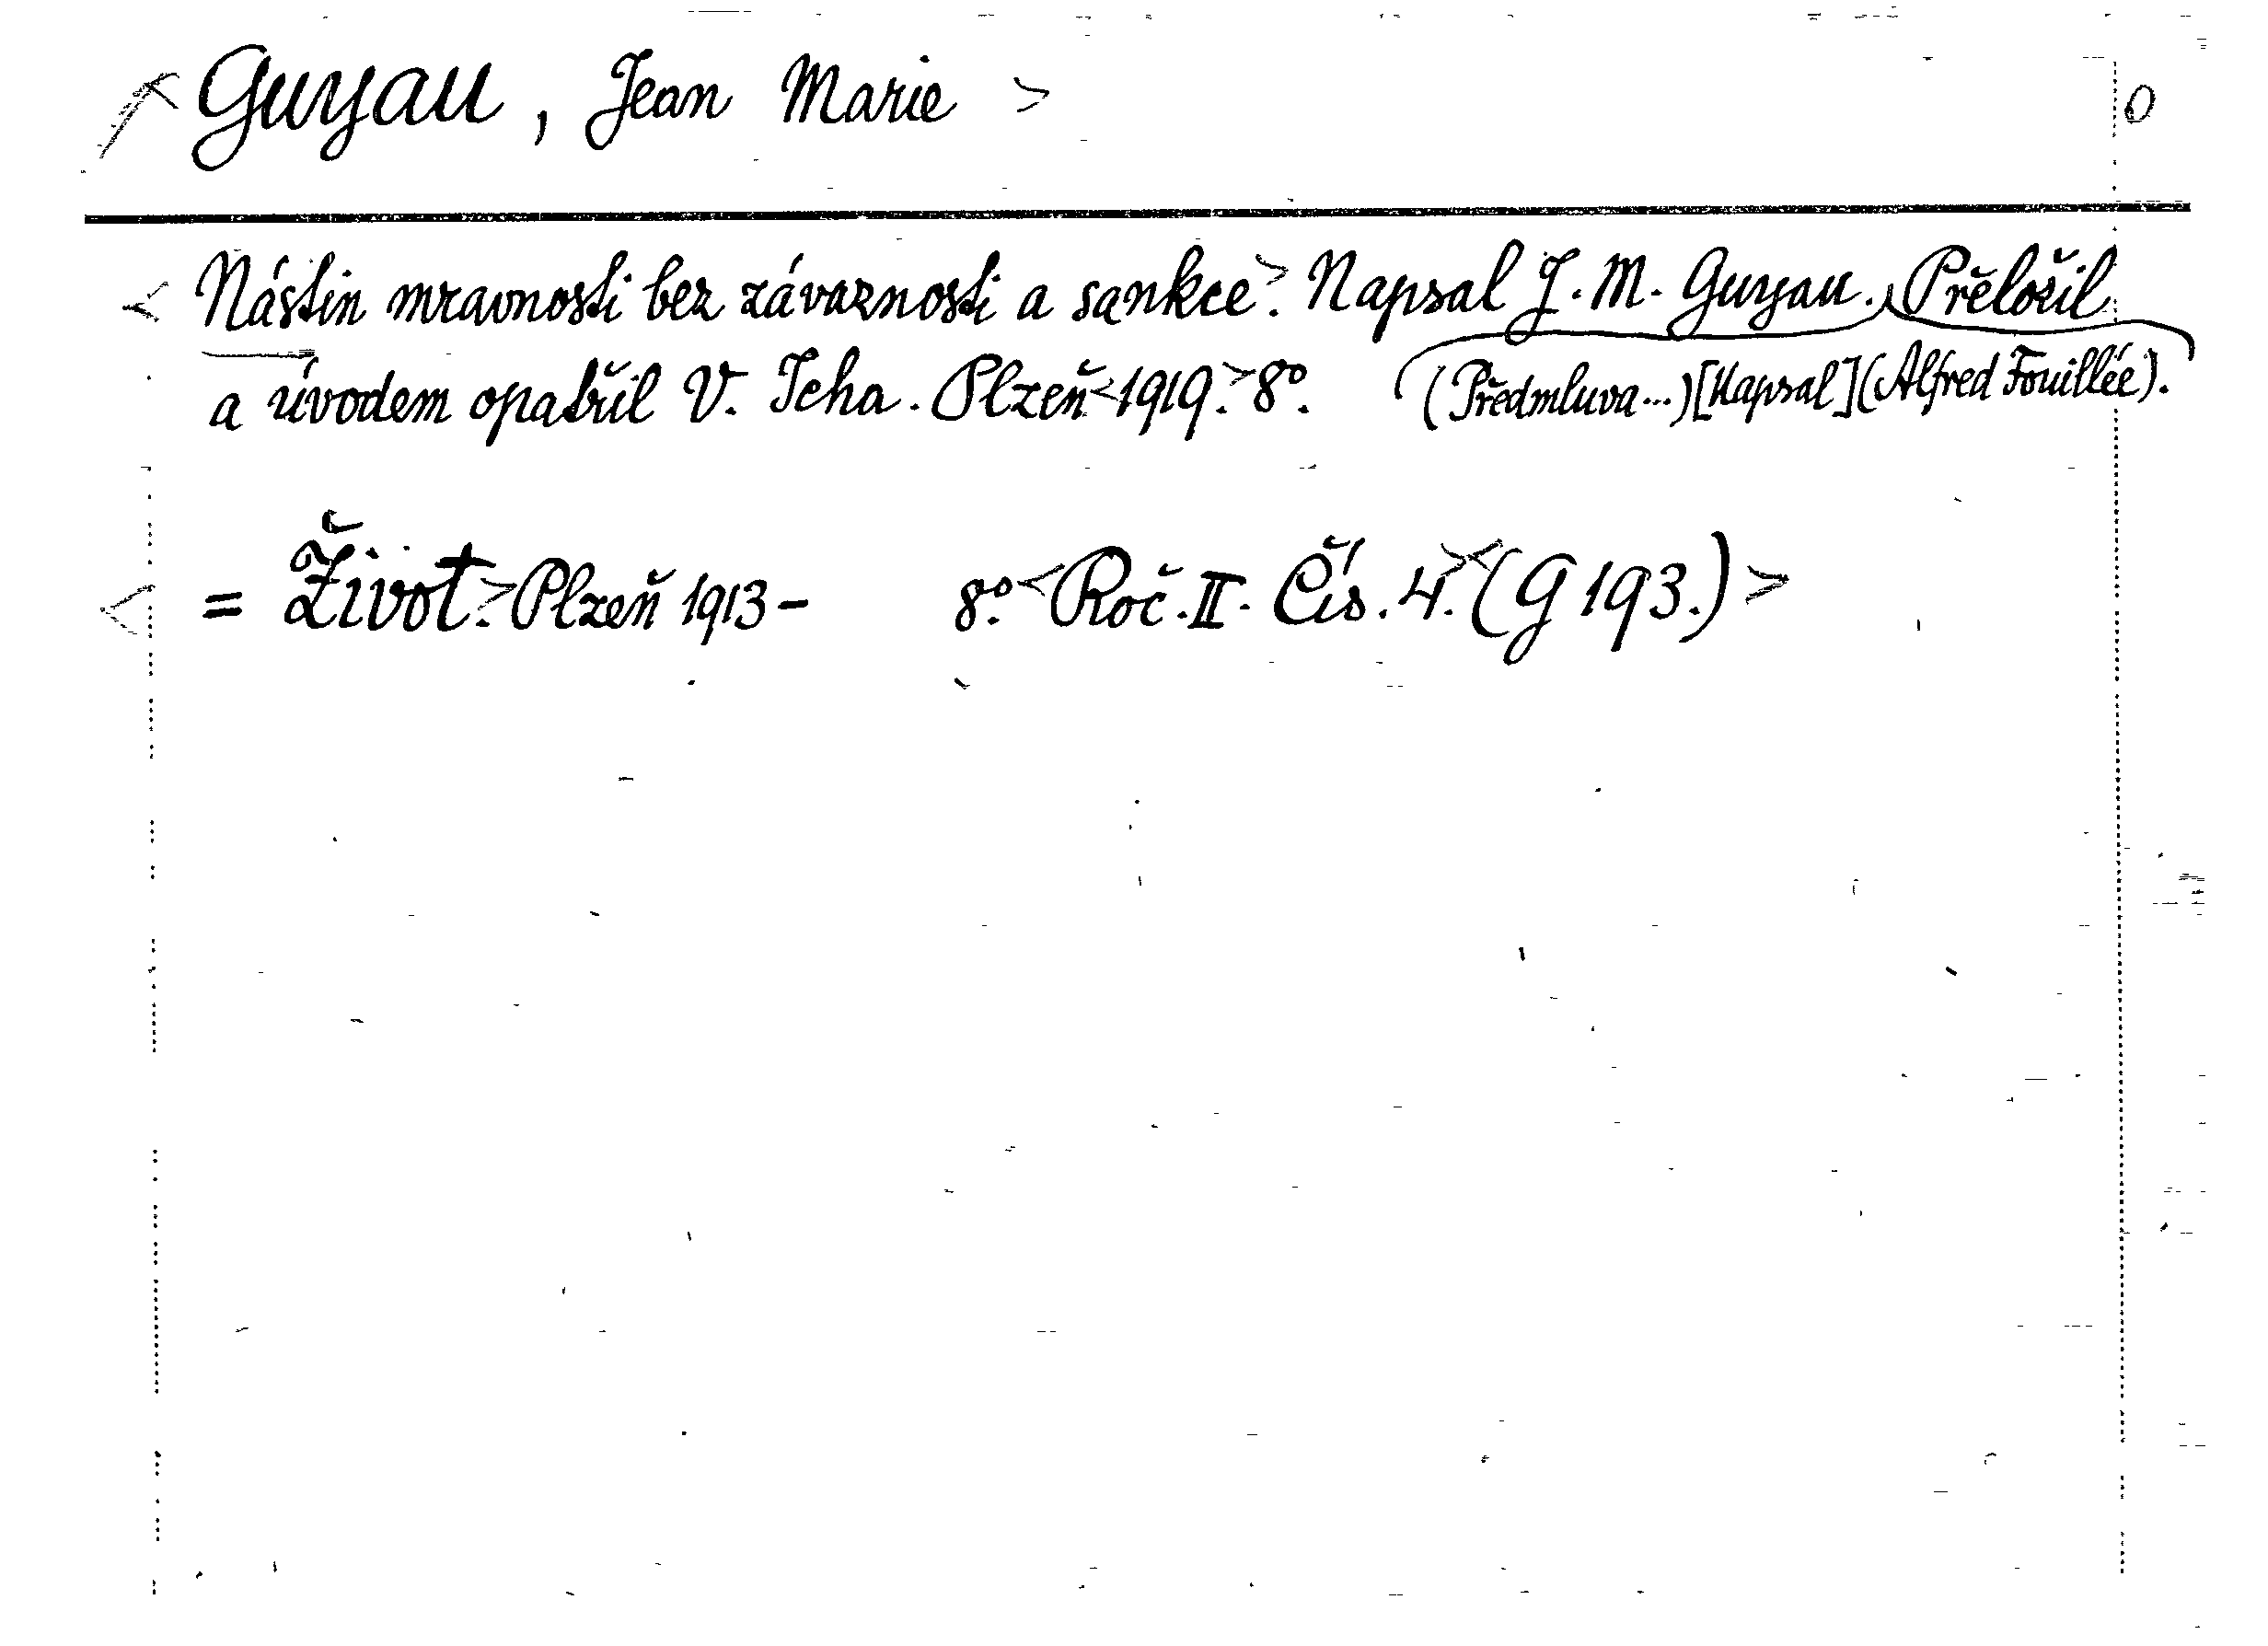 < Guyau, Jean Marie > 0
< Nástin mravnosti bez závaznosti a sankce >. Napsal J. M. Guyau. Přeložil
a úvodem opatřil V. Icha. Plzeň < 1919. > 8°. (Předmluva...) [Napsal] (Alfred Fouillée).
< = Život. > Plzeň 1913 - 8°. < Roč. II. Čís. 4. > < (G 193.) >